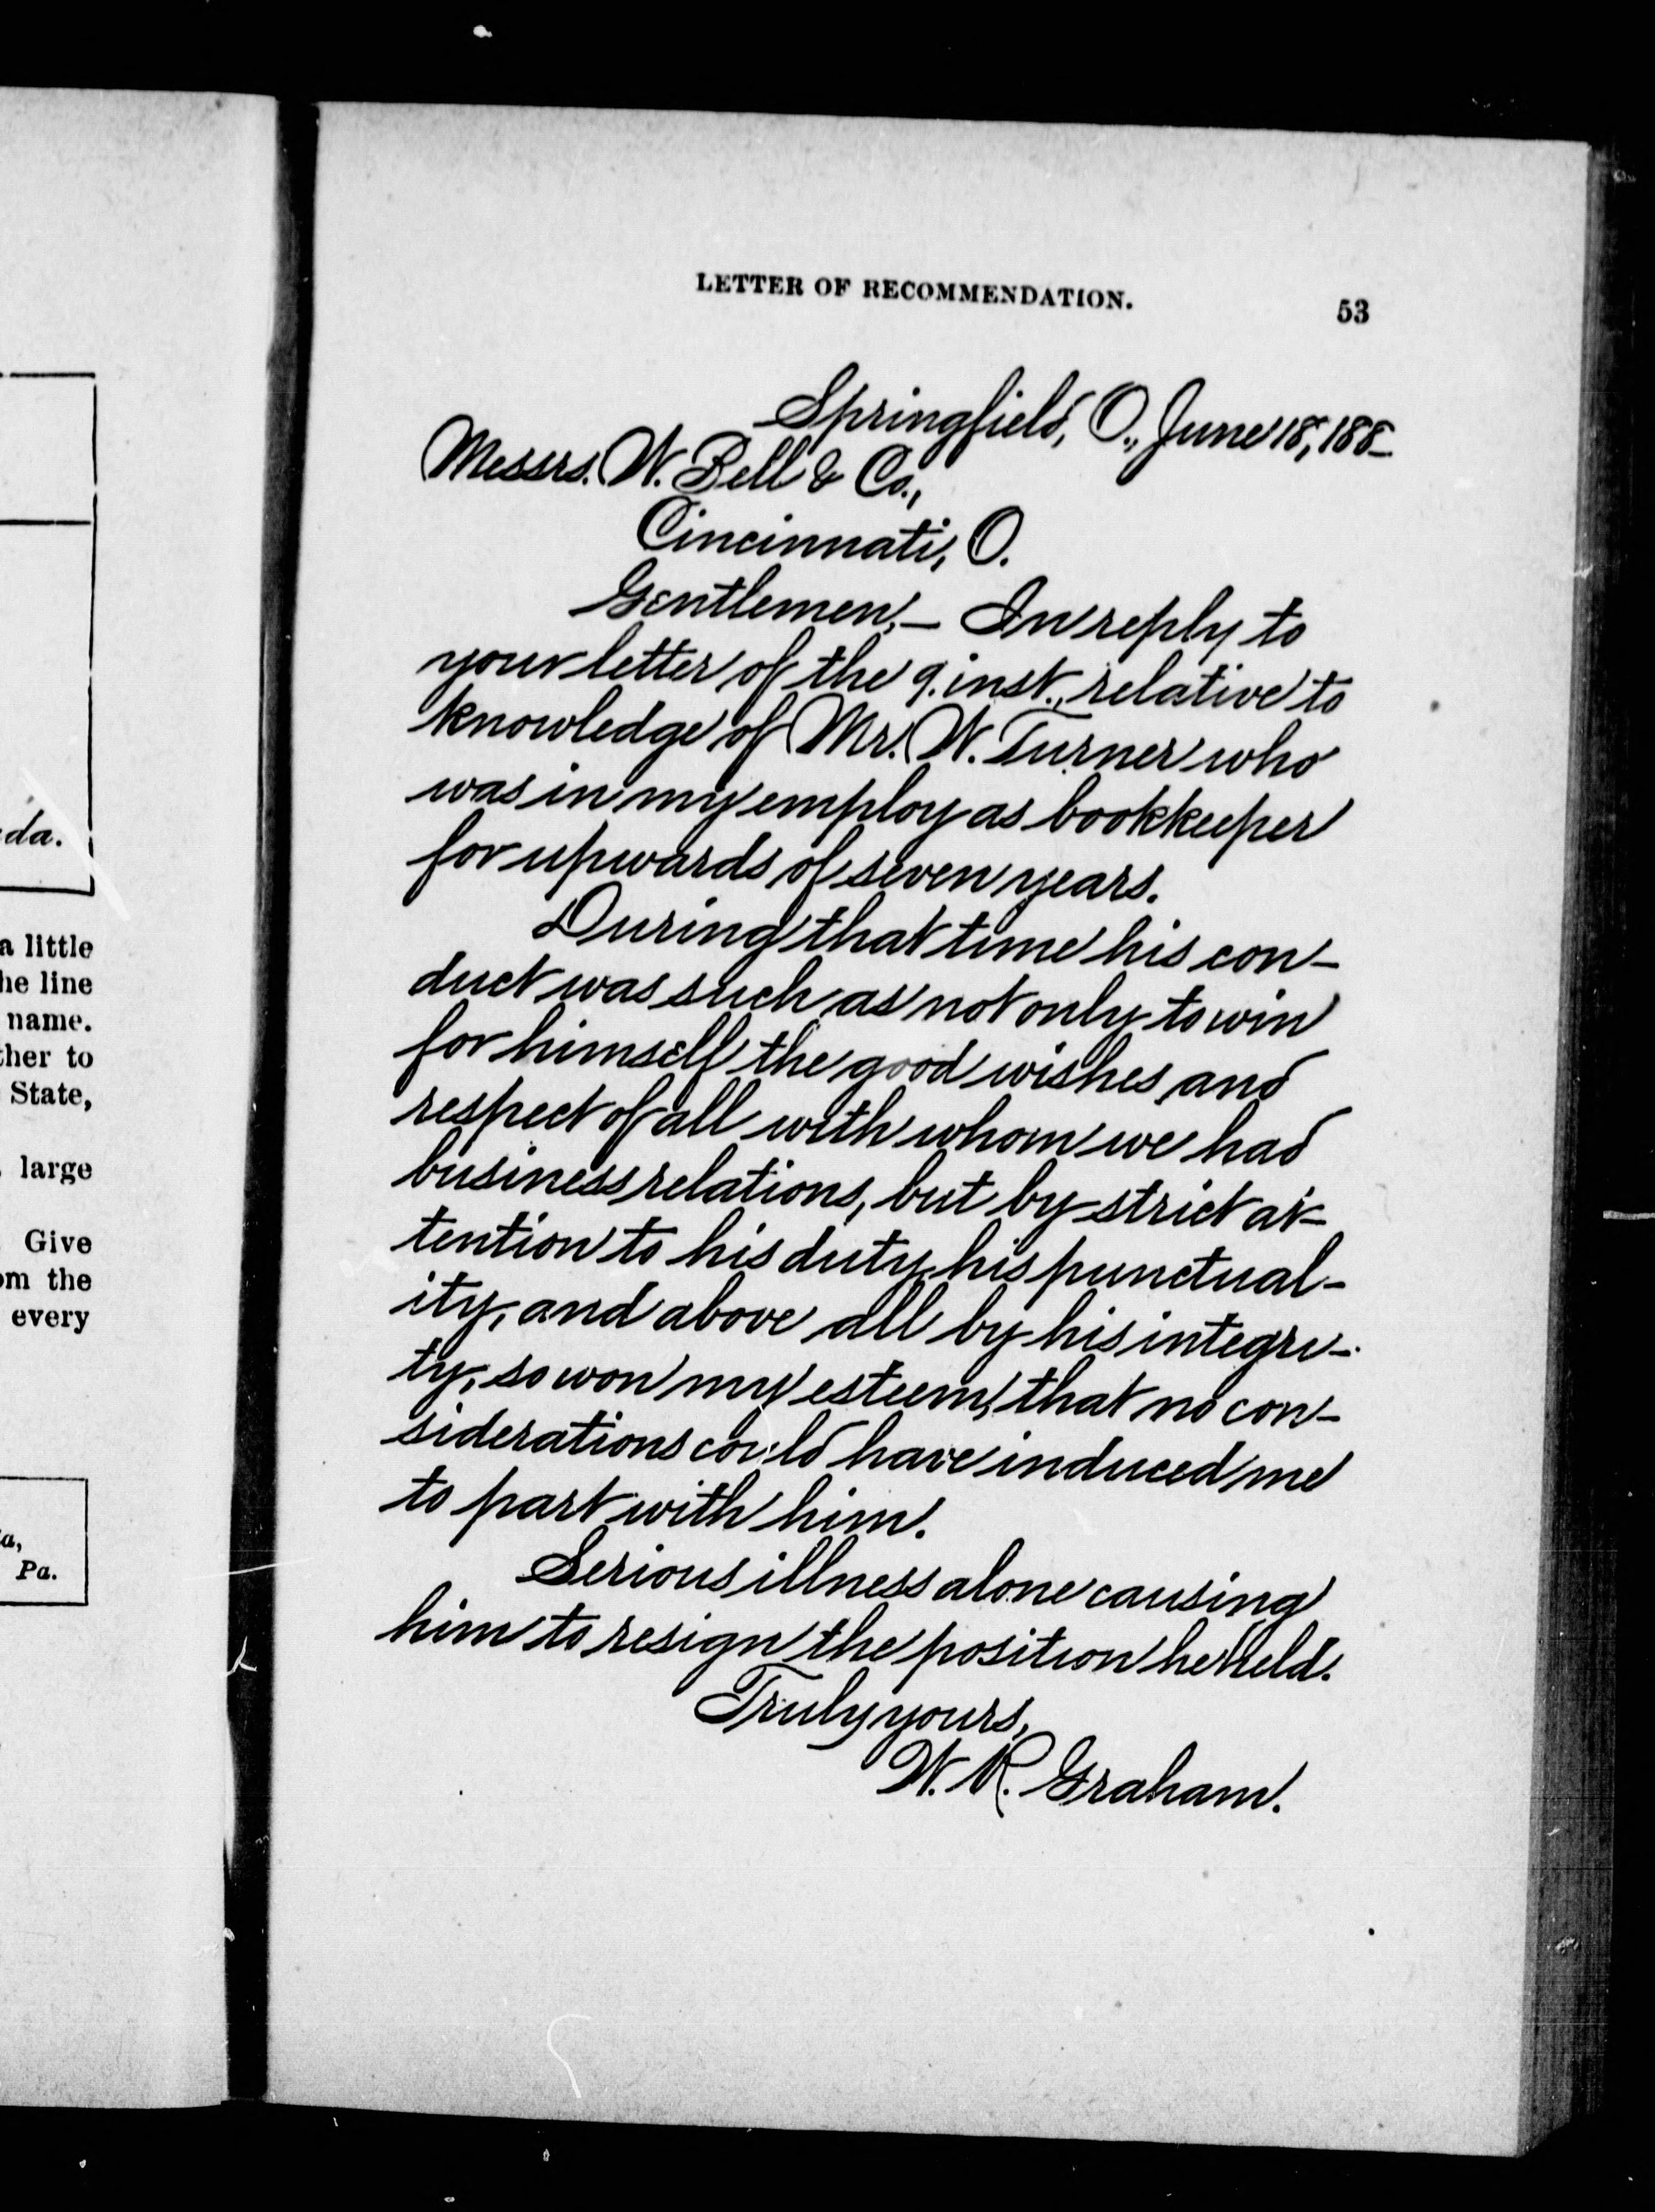 da.
a little
he line
name.
ther to
State,
large
Give
om the
every
a,
Pa.
LETTER OF RECOMMENDATION.
53
Springfield, O., June 18, 188_
Messrs. W. Bell & Co.,
Cincinnati, O.
Gentlemen,— In reply to
your letter of the 9. inst., relative to
knowledge of Mr. W. Turner who
was in my employ as bookkeeper
for upwards of seven years.
During that time his con-
duct was such as not only to win
for himself the good wishes and
respect of all with whom we had
business relations, but by strict at-
tention to his duty, his punctual-
ity, and above all by his integri-
ty, so won my esteem, that no con-
siderations could have induced me
to part with him.
Serious illness alone causing
him to resign the position he held.
Truly yours,
W. R. Graham.